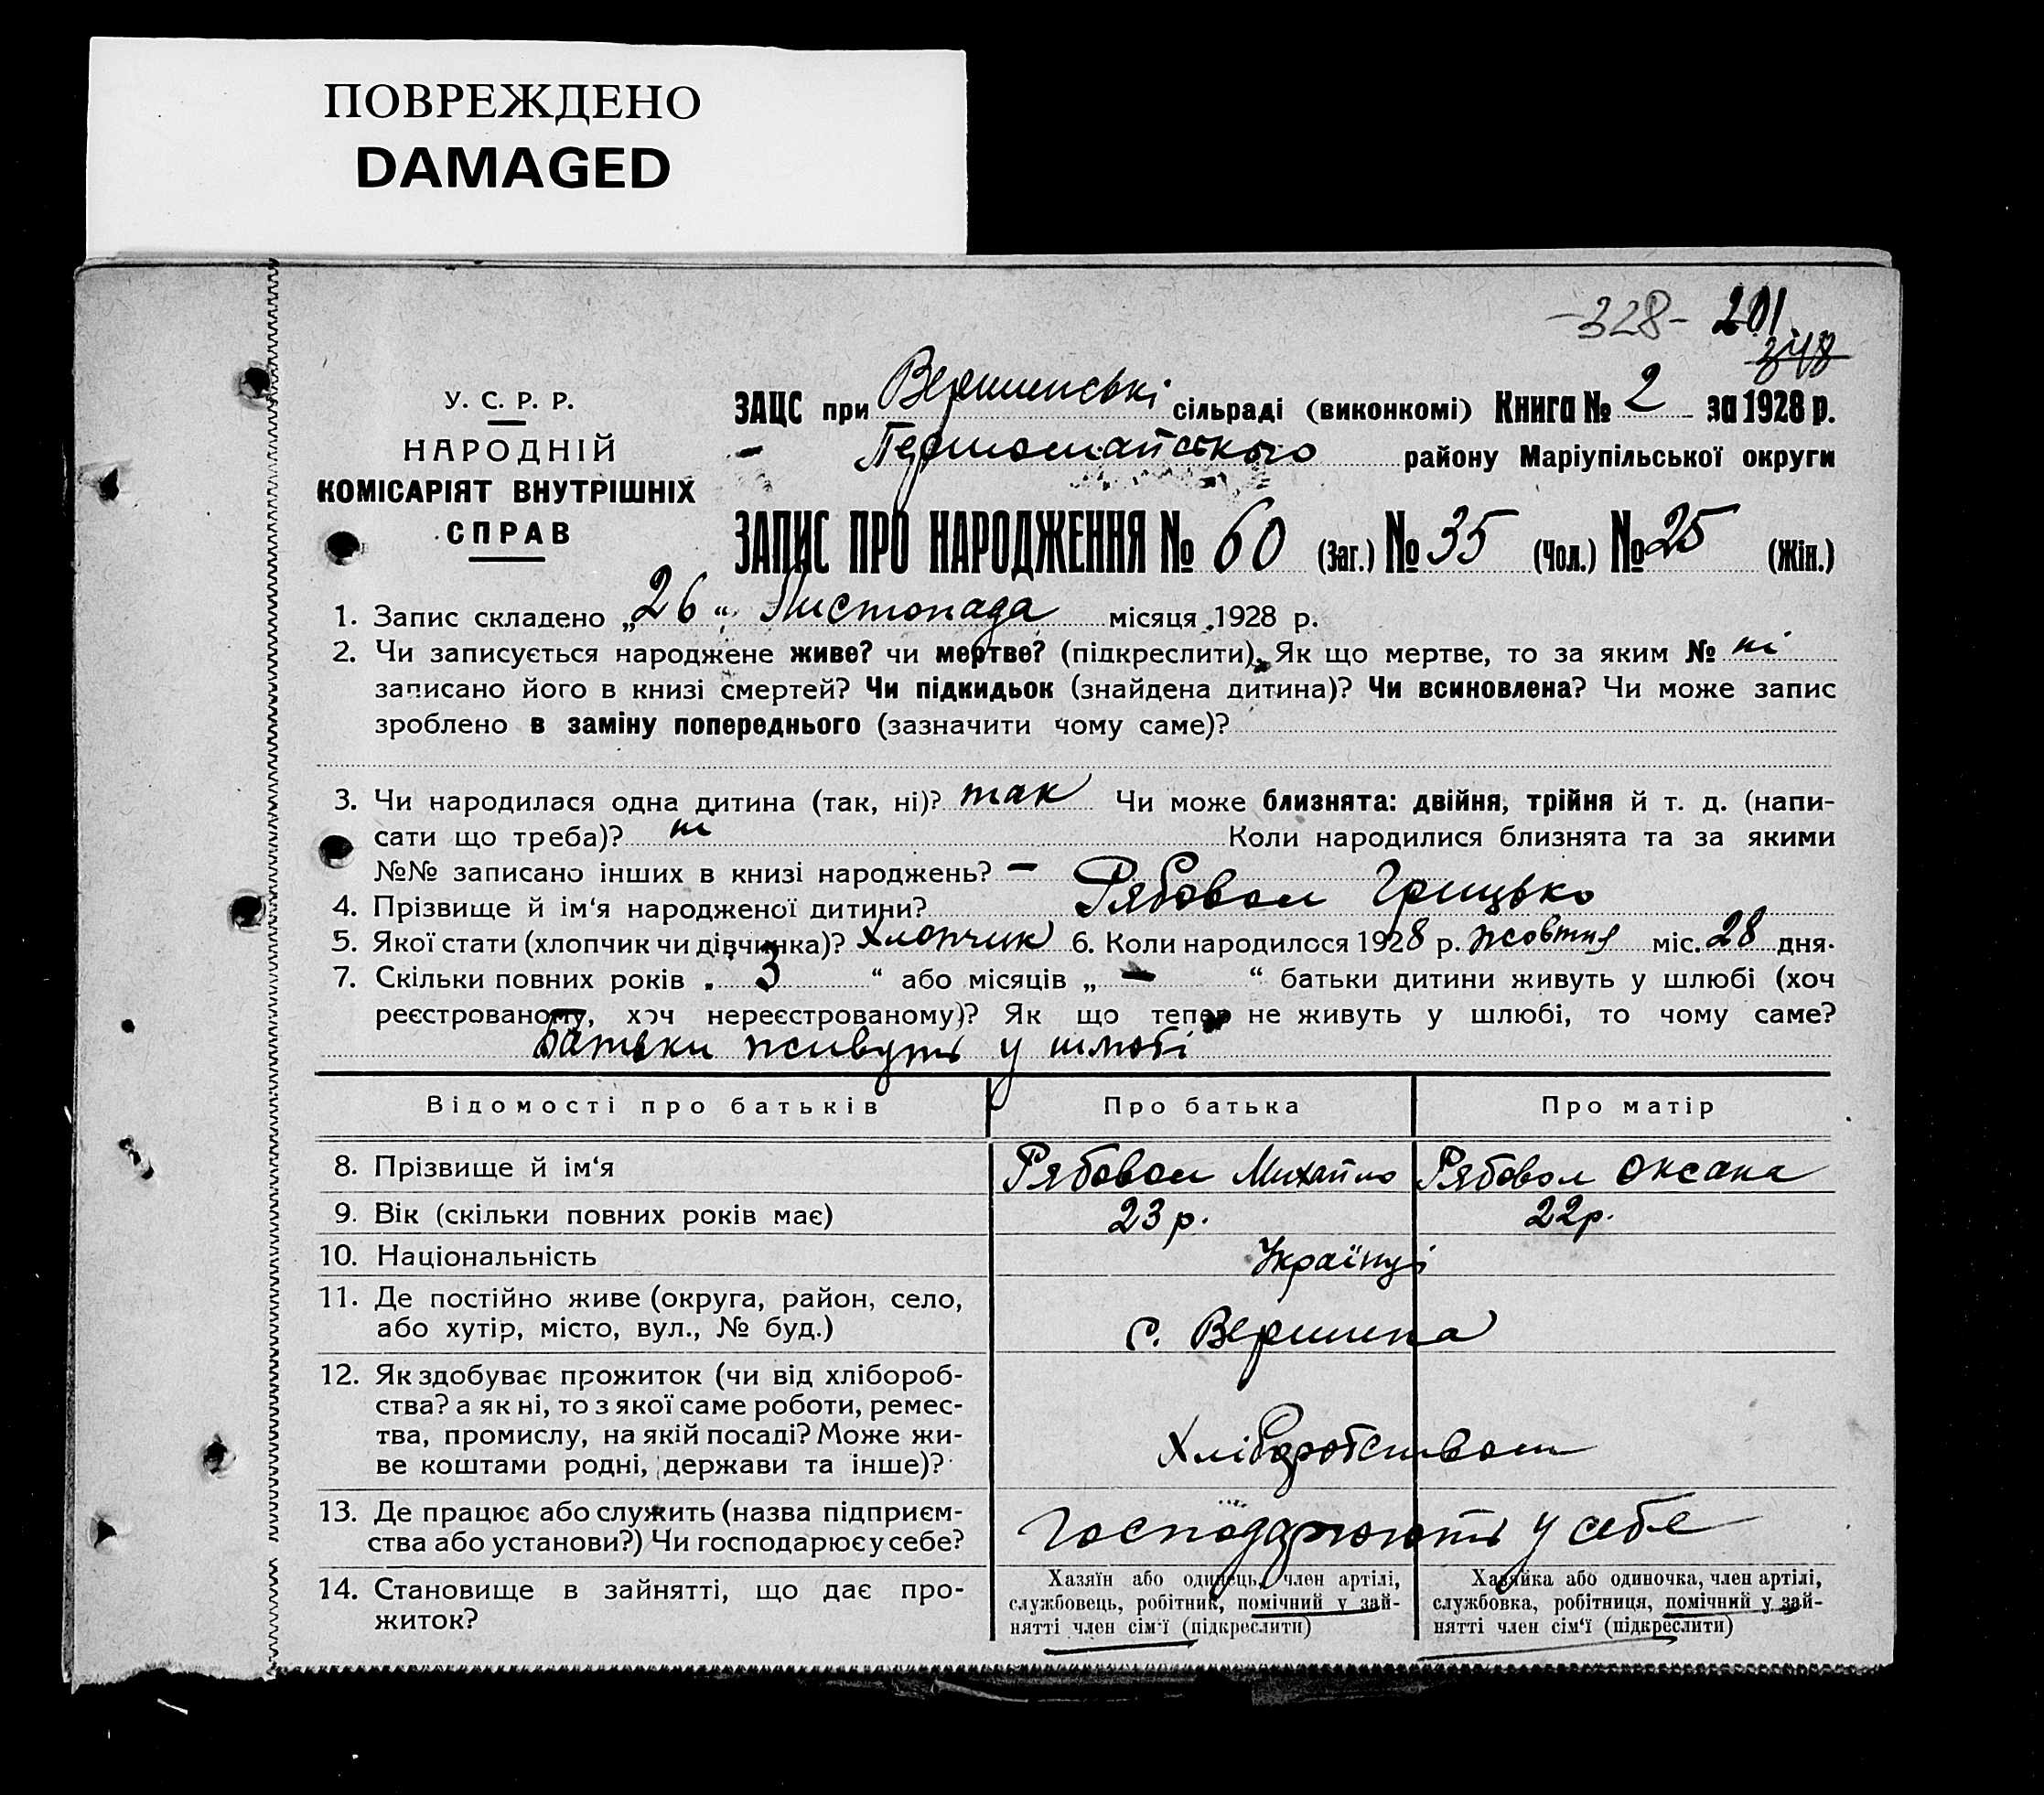 ПОВРЕЖДЕНО
DAMAGED
-328- 201
348
У. С. Р. Р.
НАРОДНІЙ
КОМІСАРІЯТ ВНУТРІШНІХ
СПРАВ
ЗАЦС при Вершинські сільраді (виконкомі) Книга № 2 за 1928 р.
- Першомайського району Маріупільської округи
ЗАПИС ПРО НАРОДЖЕННЯ № 60 (Заг.) № 35 (Чол.) № 25 (Жін.)
1. Запис складено „26“ Листопада місяця 1928 р.
2. Чи записується народжене живе? чи мертве? (підкреслити). Як що мертве, то за яким № ні
записано його в книзі смертей? Чи підкидьок (знайдена дитина)? Чи всиновлена? Чи може запис
зроблено в заміну попереднього (зазначити чому саме)?
3. Чи народилася одна дитина (так, ні)? так Чи може близнята: двійня, трійня й т. д. (напи-
сати що треба)? ні Коли народилися близнята та за якими
№№ записано інших в книзі народжень? —
4. Прізвище й ім‘я народженої дитини? Рябовол Грицько
5. Якої стати (хлопчик чи дівчинка)? хлопчик 6. Коли народилося 1928 р. жовтня міс. 28 дня.
7. Скільки повних років „ 3 “ або місяців „ — “ батьки дитини живуть у шлюбі (хоч
реєстрованому, хоч нереєстрованому)? Як що тепер не живуть у шлюбі, то чому саме?
Батьки живуть у шлюбі
Відомості про батьків Про батька Про матір
8. Прізвище й ім‘я Рябовол Михайло Рябовол Оксана
9. Вік (скільки повних років має) 23 р. 22 р.
10. Національність Українці
11. Де постійно живе (округа, район, село,
або хутір, місто, вул., № буд.) с. Вершина
12. Як здобуває прожиток (чи від хлібороб-
ства? а як ні, то з якої саме роботи, ремес-
тва, промислу, на якій посаді? Може жи-
ве коштами родні, держави та інше)? Хліборобством
13. Де працює або служить (назва підприєм-
ства або установи?) Чи господарює у себе? Господарюють у себе
14. Становище в зайнятті, що дає про-
житок?
Хазяїн або одинець, член артілі,
службовець, робітник, помічний у зай-
нятті член сім‘ї (підкреслити)
Хазяйка або одиночка, член артілі,
службовка, робітниця, помічний у зай-
нятті член сім‘ї (підкреслити)